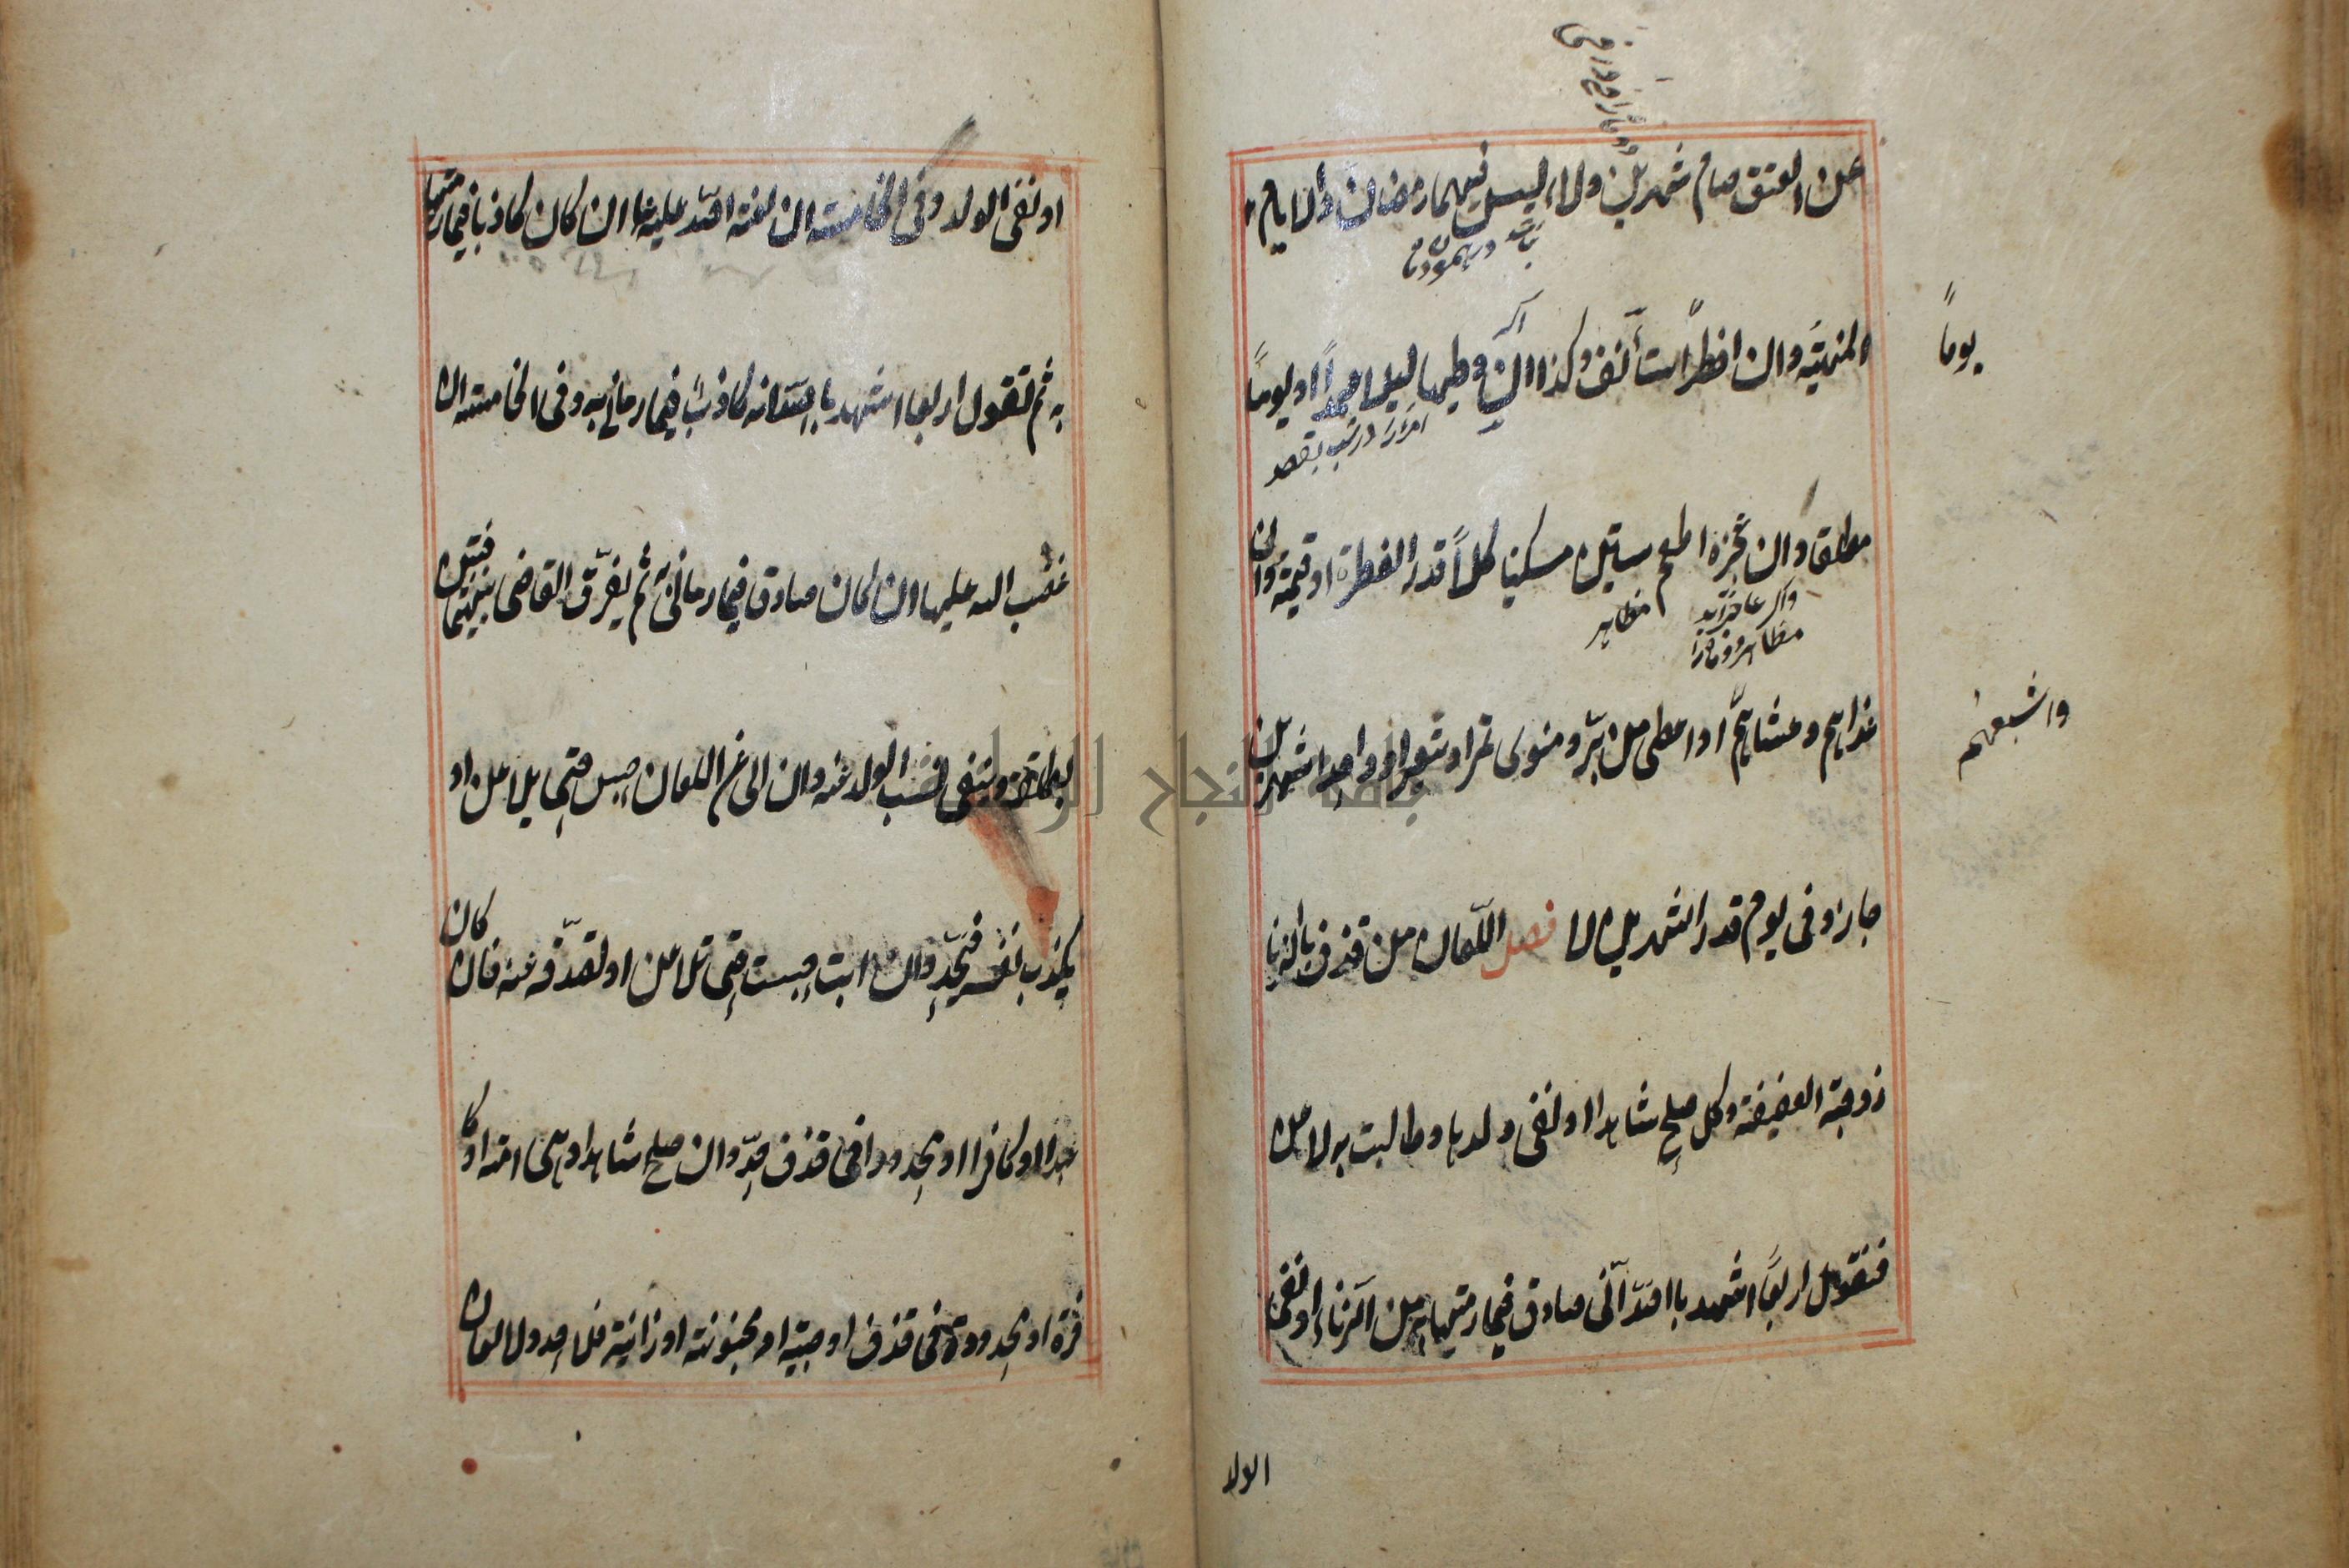 عن العتق صام شهرين ولاء ليس فيهما رمضان والايام
المنهية وان افطر استأنف وكذا ان وطيها ليلا عمداً او يوماً
يوماً
اكر
مطلقا وان عجز اطعم ستين مسكينا كلاً قدر الفطرة او قيمته وان
واكر عاجز آيد
مظاهر
غداهم وعشاهم او اعطى من بر ومنوى تمر او شعير او واحدا شهرين
واشبعهم
جاز وفى يوم قدر الشهرين لا فصل اللعان من قذف بالزنا
زوجته العفيفة وكل صلح شاهدا او نفى ولدها وطالبت به لاعن
فيقول اربعاً اشهد بالله انى صادق فيما رميتها به من الزناء او نفى
الولد
او نفى الولد وفى الخامسة ان لعنة الله عليه ان كان كاذبا فيما رميتها
به ثم تقول اربعا اشهد بالله انه كاذب فيما رمانى به وفى الخامسة ان
غضب الله عليها ان كان صادق فيما رمانى به ثم يفرق القاضى بينهما فتبين
بطلقة وينفى نسب الولد عنه وان ابى عن اللعان حبس حتى يلاعن او
يكذب نفسه فيحد وان ابت حبست حتى تلاعن او تصدقه فان كان
عبدا او كافرا او محدودا فى قذف حد وان صلح شاهدا وهى امة او كا
فرة او محدودة فى قذف او صبية او مجنونة او زانية فلا حد ولا لعان
جامعة النجاح الوطنية